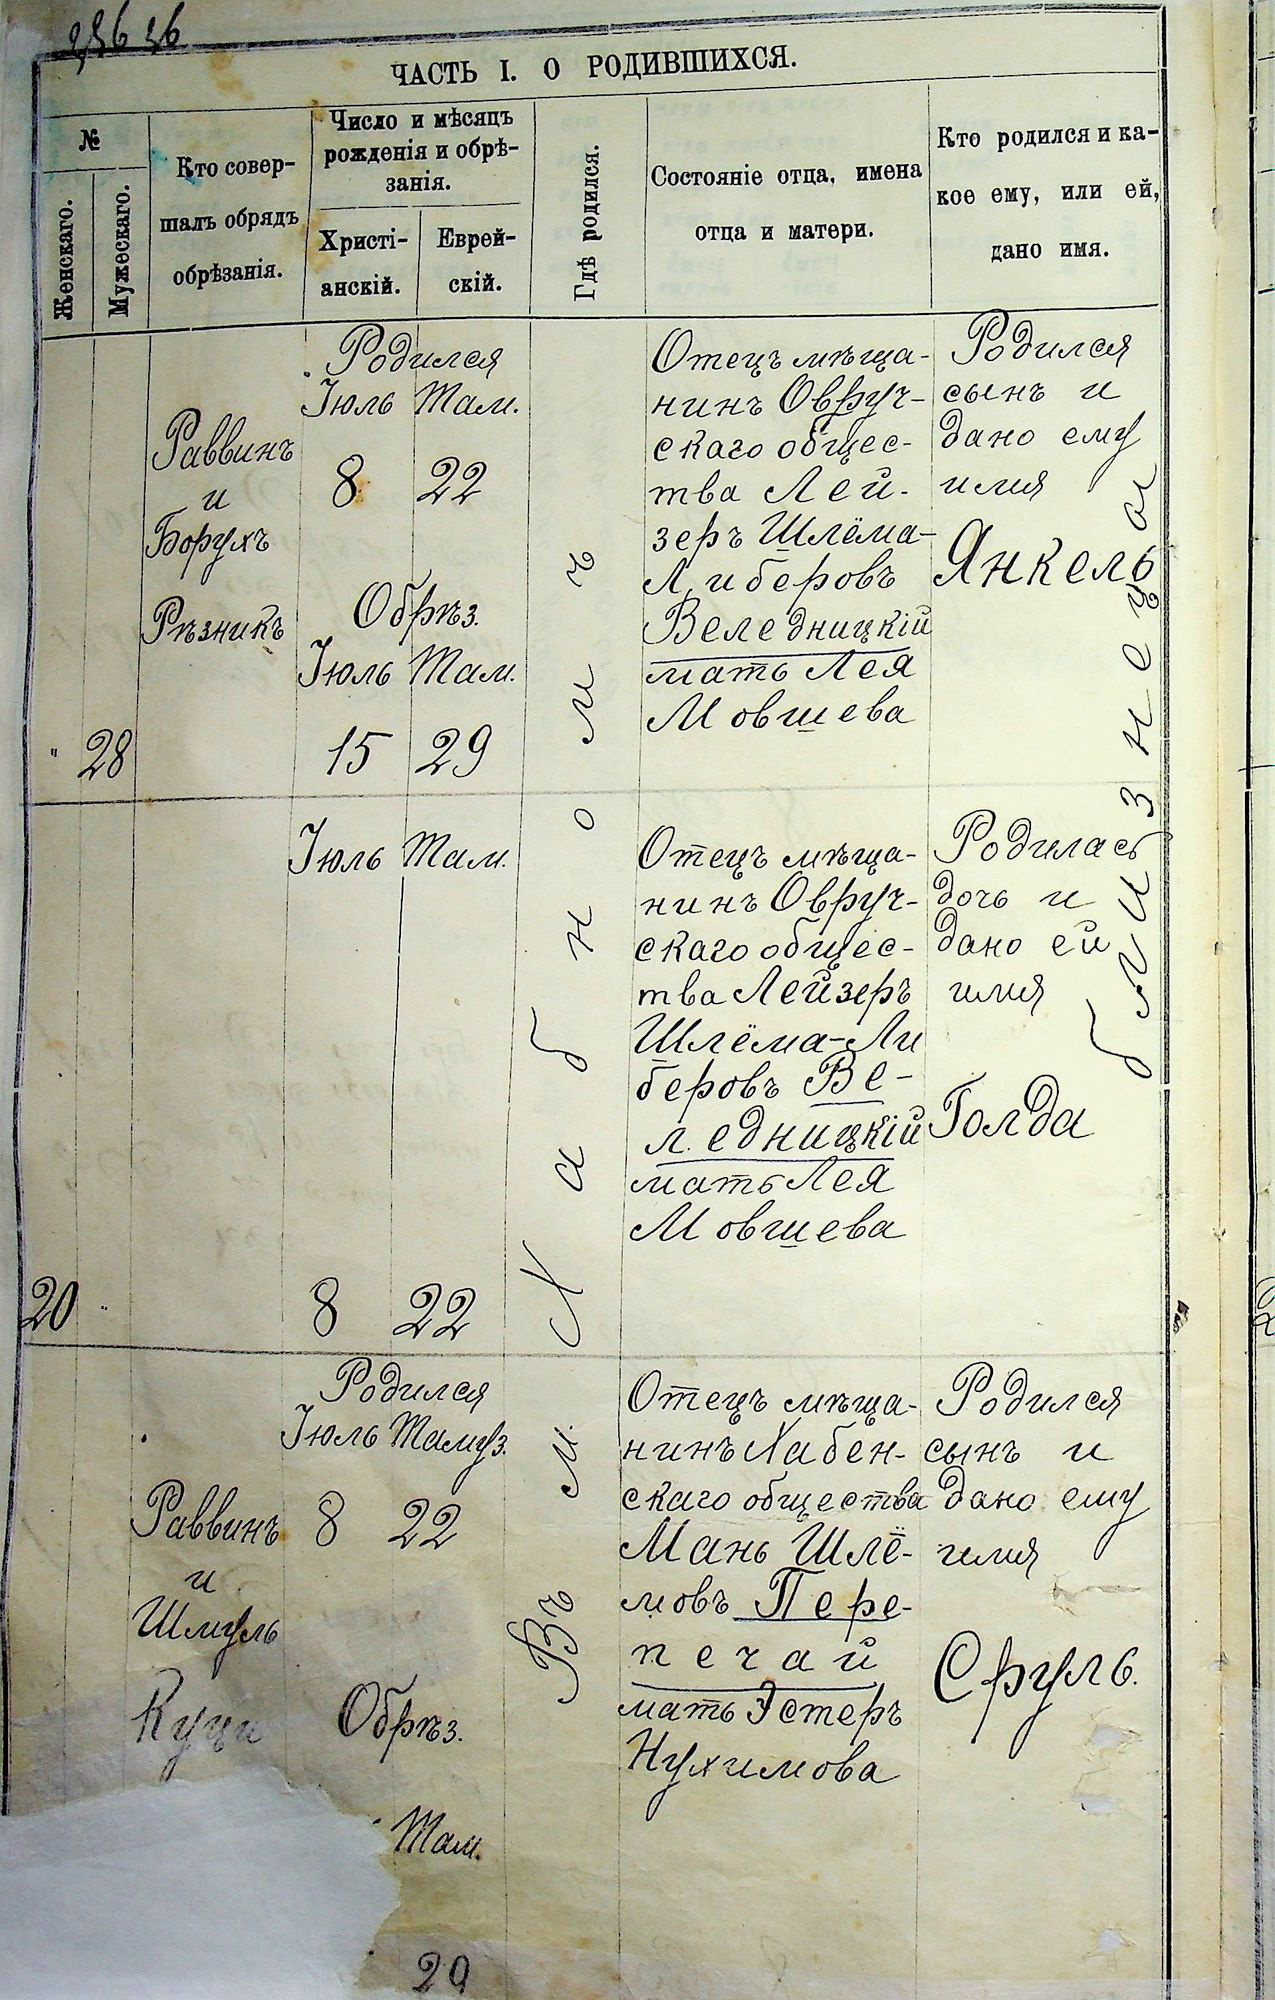 ЧАСТЬ I. О РОДИВШИХСЯ.
№
Женскаго.
Мужескаго.
Кто совер-
шалъ обрядъ
обрѣзанія.
Число и мѣсяцъ
рожденія и обрѣ-
занія.
Христі-
анскій.
Еврей-
скій.
Гдѣ родился.
Состояніе отца, имена
отца и матери.
Кто родился и ка-
кое ему, или ей,
дано имя.
28
Раввинъ
и
Борухъ
Рѣзникъ
Родился
Іюль Там.
8 22
Обрѣз.
Іюль Там.
15 29
Въ м. Хабномъ
Отецъ мѣща-
нинъ Овруч-
скаго общес-
тва Лей-
зеръ Шлёма-
Либеровъ
Веледницкій
мать Лея
Мовшева
Родился
сынъ и
дано ему
имя
Янкель
близнеца
20
Іюль Там.
8 22
Отецъ мѣща-
нинъ Овруч-
скаго общес-
тва Лейзеръ
Шлёма-Ли
беровъ Ве-
ледницкій
мать Лея
Мовшева
Родилась
дочь и
дано ей
имя
Голда
Раввинъ
и
Шмуль
Родился
Іюль Тамуз.
8 22
Обрѣз.
Там.
29
Отецъ мѣща-
нинъ Хабен-
скаго общества
Мань Шлё-
мовъ Пере-
печай
мать Эстеръ
Нухимова
Родился
сынъ и
дано ему
имя
Сруль.